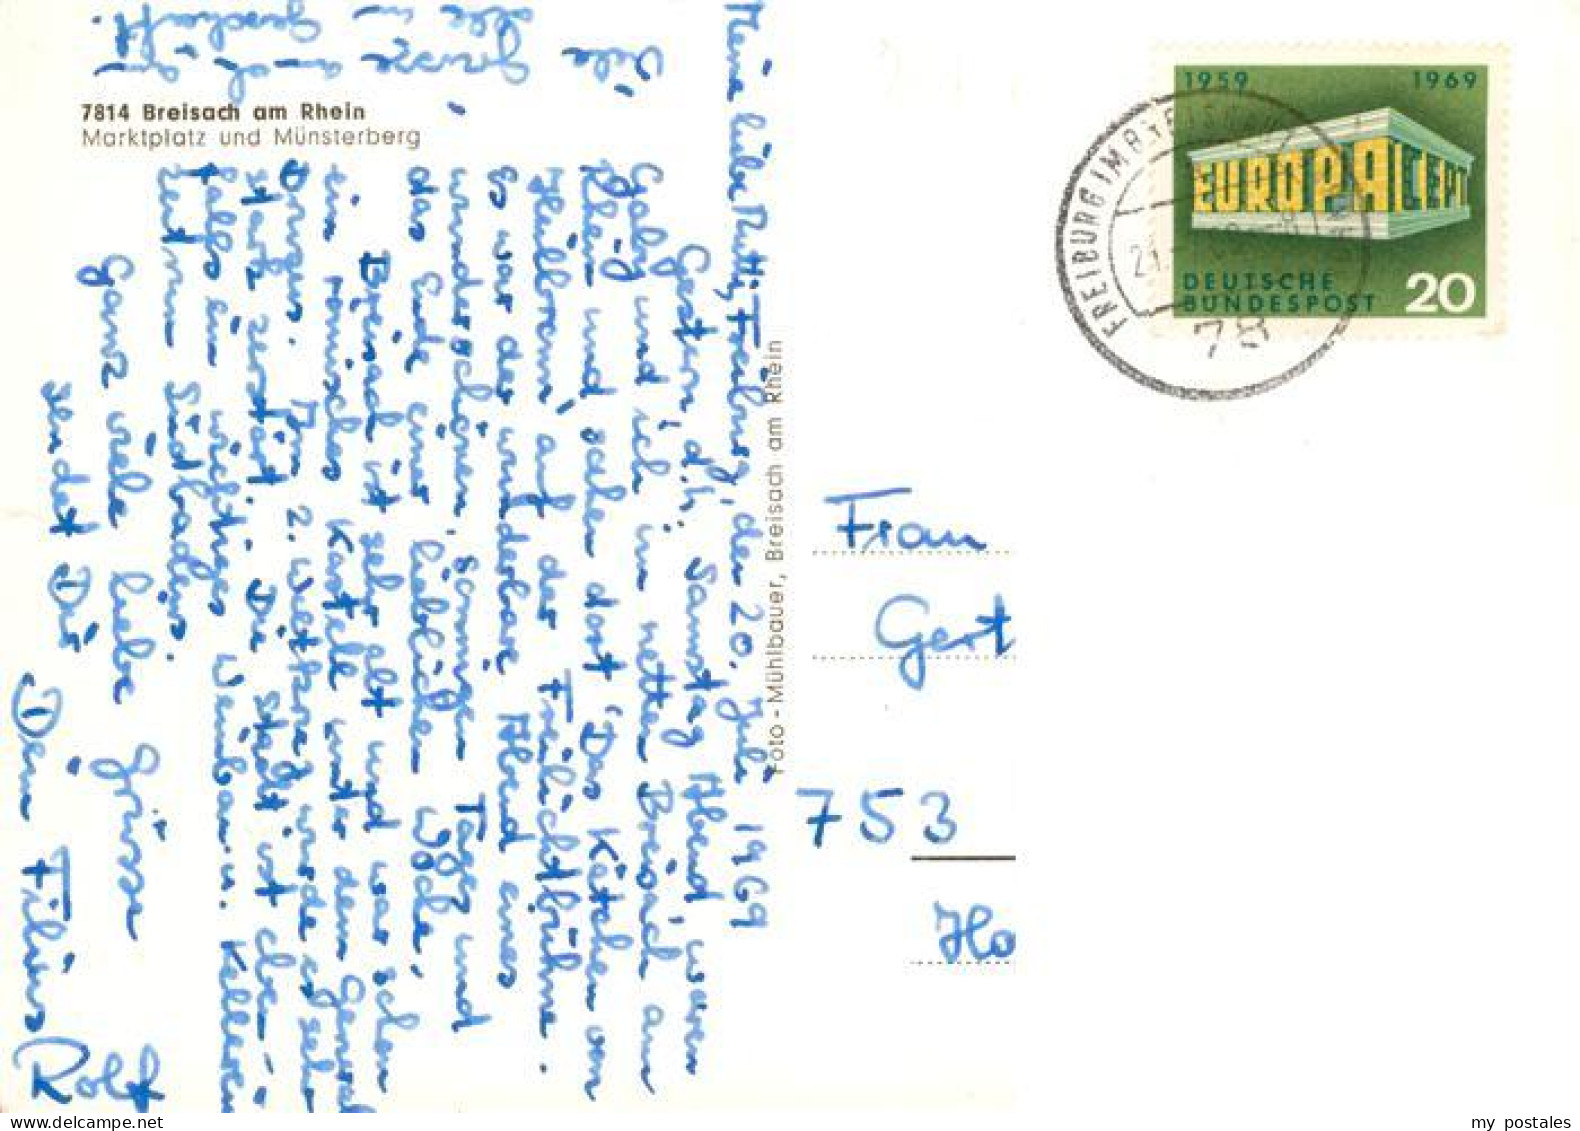 7814 Breisach am Rhein
Marktplatz und Münsterberg
Meine liebe Mutti, Freiburg, den 20. Juli 1969
Gestern, d.h. Samstag Abend waren
Gaby und ich im netten Breisach am
Rhein und sahen dort 'Das Kätchen von
Heilbronn' auf der Freilichtbühne.
Es war der wunderbare Abend eines
wunderschönen, sonnigen Tages und
das Ende einer lieblichen Woche.
Breisach ist sehr alt und war schon
ein römisches Kastell unter dem General
Drusus. Im 2. Weltkrieg wurde es sehr
stark zerstört. Die Stadt ist eben-
falls ein wichtiges Weinbau u. Kelleren
zentrum Südbadens.
Ganz viele liebe Grüsse
sendet Dir
Dein Filius
Rolf
Viele
Grüsse auch an
alle im Geschäft.
Foto-Mühlbauer, Breisach am Rhein
1959 1969
EUROPA CEPT
DEUTSCHE
BUNDESPOST 20
FREIBURG IM BREISGAU
78
Frau
Gert
753
Ho
my postales